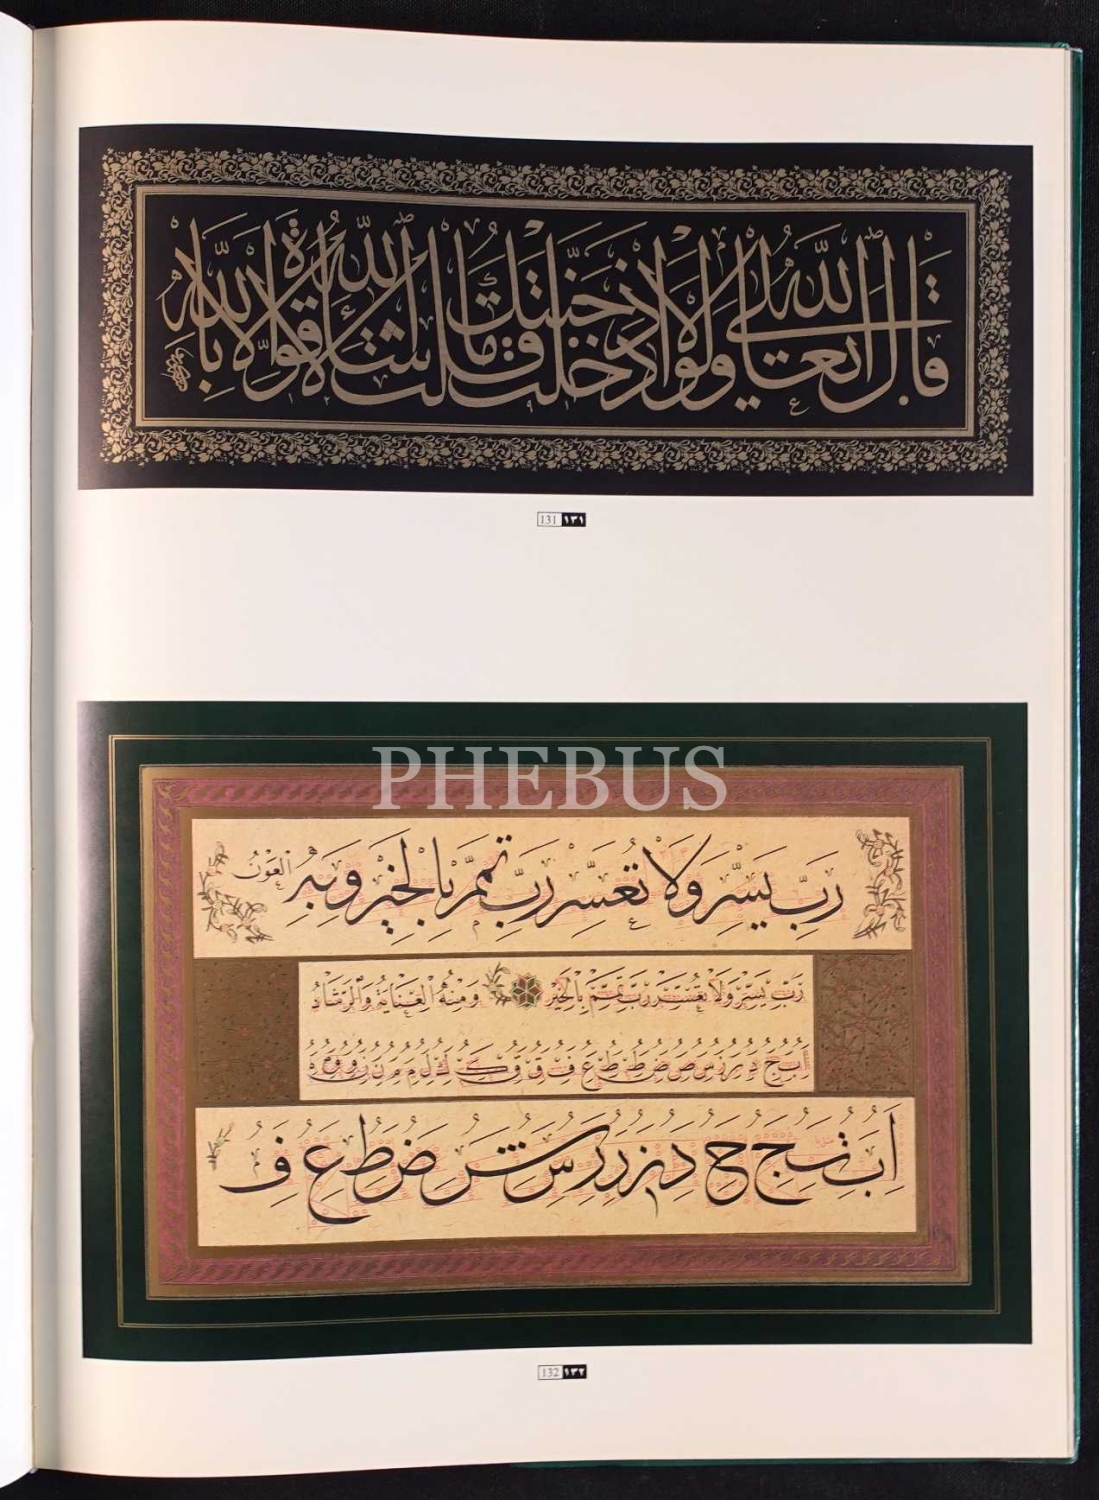 قال الله تعالى ولولا إذ دخلت جنتك قلت ما شاء الله لا قوة إلا بالله
131 ١٣١
PHEBUS
رَبِّ يَسِّرْ وَلَا تُعَسِّرْ رَبِّ تَمِّمْ بِالْخَيْرِ وَبِهِ الْعَوْنُ
رَبِّ يَسِّرْ وَلَا تُعَسِّرْ رَبِّ تَمِّمْ بِالْخَيْرِ وَمِنْهُ الْعِنَايَةُ وَالرَّشَادُ
ا ب ج د ر س ص ط ع ف ق ك
ا ب ت ج ح د
132 ١٣٢